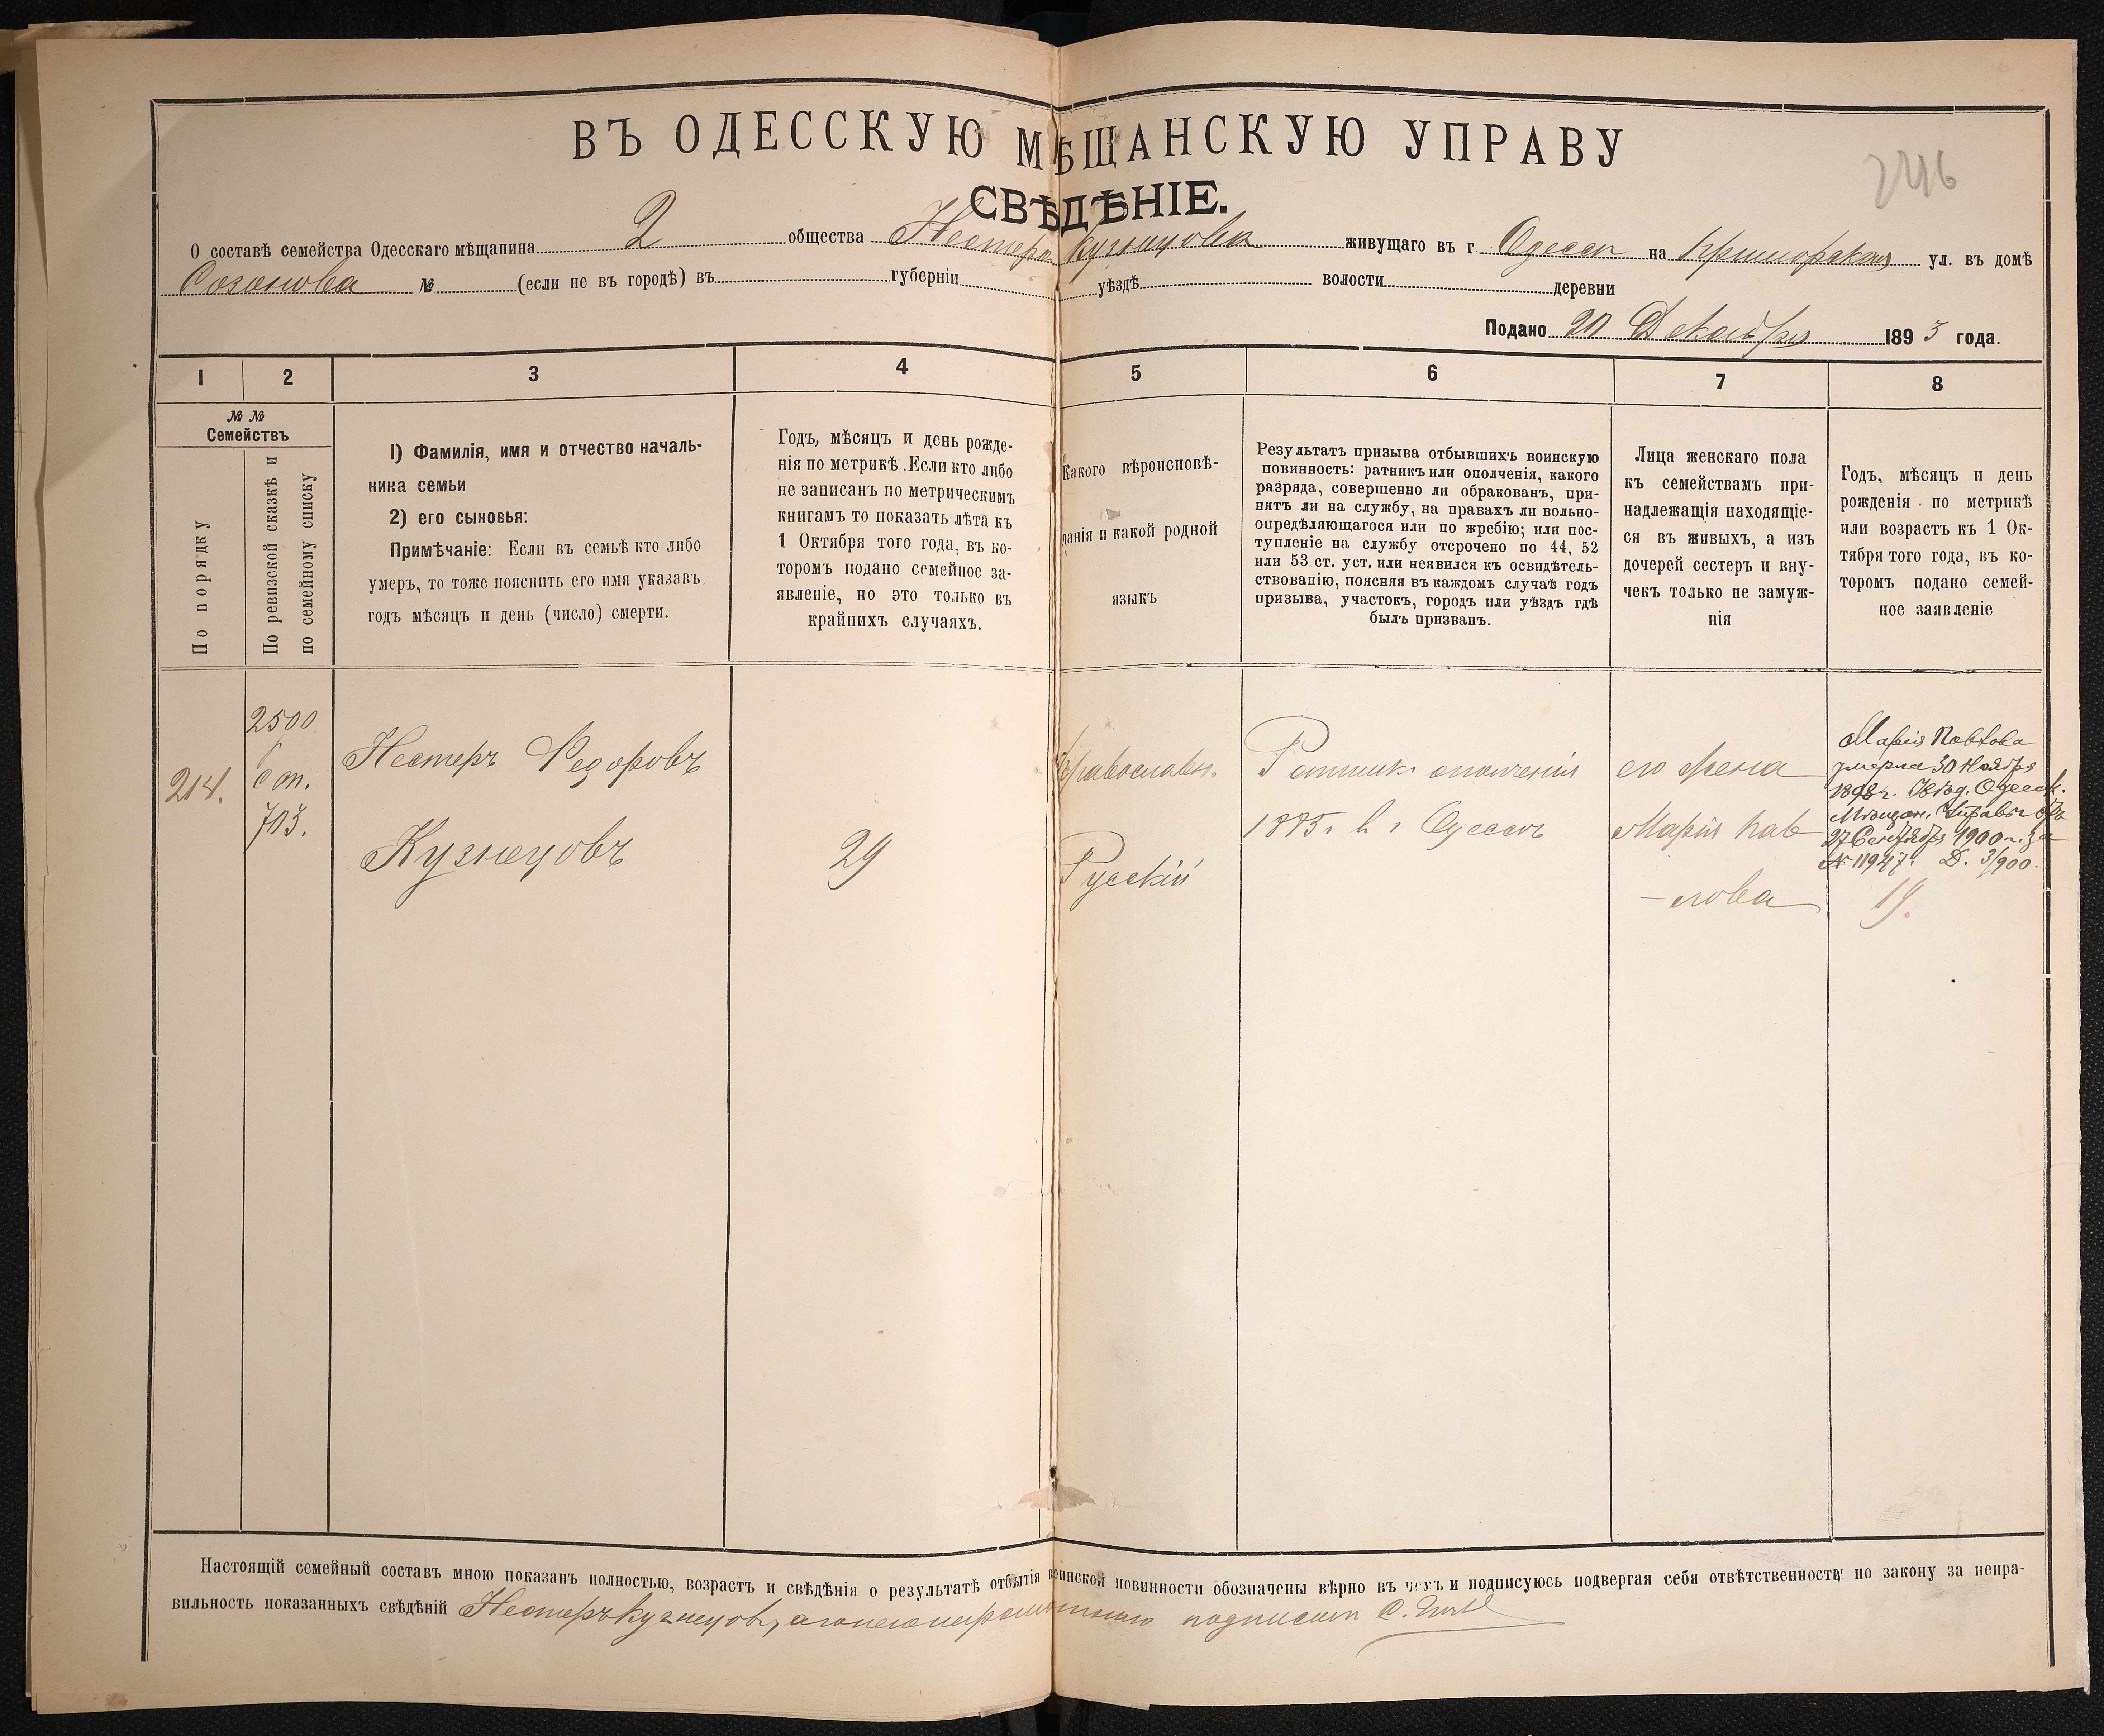 ВЪ ОДЕССКУЮ МѢЩАНСКУЮ УПРАВУ
СВѢДѢНІЕ.
О составѣ семейства Одесскаго мѣщанина 2 общества Нестера Кузнецова живущаго въ г Одессѣ на ул. въ домѣ
Созонова № (если не въ городѣ) въ губерніи уѣздѣ волости деревни
Подано 20 Декабря 1893 года.
1 2 3 4 5 6 7 8
№ №
Семействъ
По порядку
По ревизской сказкѣ и
по семейному списку
1) Фамилія, имя и отчество началь-
ника семьи
2) его сыновья:
Примѣчаніе: Если въ семьѣ кто либо
умеръ, то тоже пояснить его имя указавъ
годъ мѣсяцъ и день (число) смерти.
Годъ, мѣсяцъ и день рожде-
нія по метрикѣ. Если кто либо
не записанъ по метрическимъ
книгамъ то показать лѣта къ
1 Октября того года, въ ко-
торомъ подано семейное за-
явленіе, но это только въ
крайнихъ случаяхъ.
Какого вѣроисповѣ-
данія и какой родной
языкъ
Результатъ призыва отбывшихъ воинскую
повинность: ратникъ или ополченія, какого
разряда, совершенно ли обракованъ, при-
нятъ ли на службу, на правахъ ли вольно-
опредѣляющагося или по жребію; или пос-
тупленіе на службу отсрочено по 44, 52
или 53 ст. уст, или неявился къ освидѣтель-
ствованію, поясняя въ каждомъ случаѣ годъ
призыва, участокъ, городъ или уѣздъ гдѣ
былъ призванъ.
Лица женскаго пола
къ семействамъ при-
надлежащія находящіе-
ся въ живыхъ, а изъ
дочерей сестеръ и вну-
чекъ только не замуж-
нія
Годъ, мѣсяцъ и день
рожденія по метрикѣ
или возрастъ къ 1 Ок-
тября того года, въ ко-
торомъ подано семей-
ное заявленіе
214.
2500
с т.
703.
Нестеръ Федоровъ
Кузнецовъ
29
Православн.
Русскій
Ратник ополченія
1885 г. в г Одессѣ
его жена
Марія Пав
-лова
Марія Павлова
умерла 30 Ноября
1898 г. Одесск.
Мѣщан. Управы отъ
27 Сентября 1900 г. за
№ 11947. Д. 3/900.
19.
Настоящій семейный составъ мною показанъ полностью, возрастъ и свѣдѣнія о результатѣ отбытія воинской повинности обозначены вѣрно въ чемъ и подписуюсь подвергая себя отвѣтственности по закону за непра-
вильность показанныхъ свѣдѣній Нестеръ Кузнецовъ, а за него неграмотнаго подписалъ